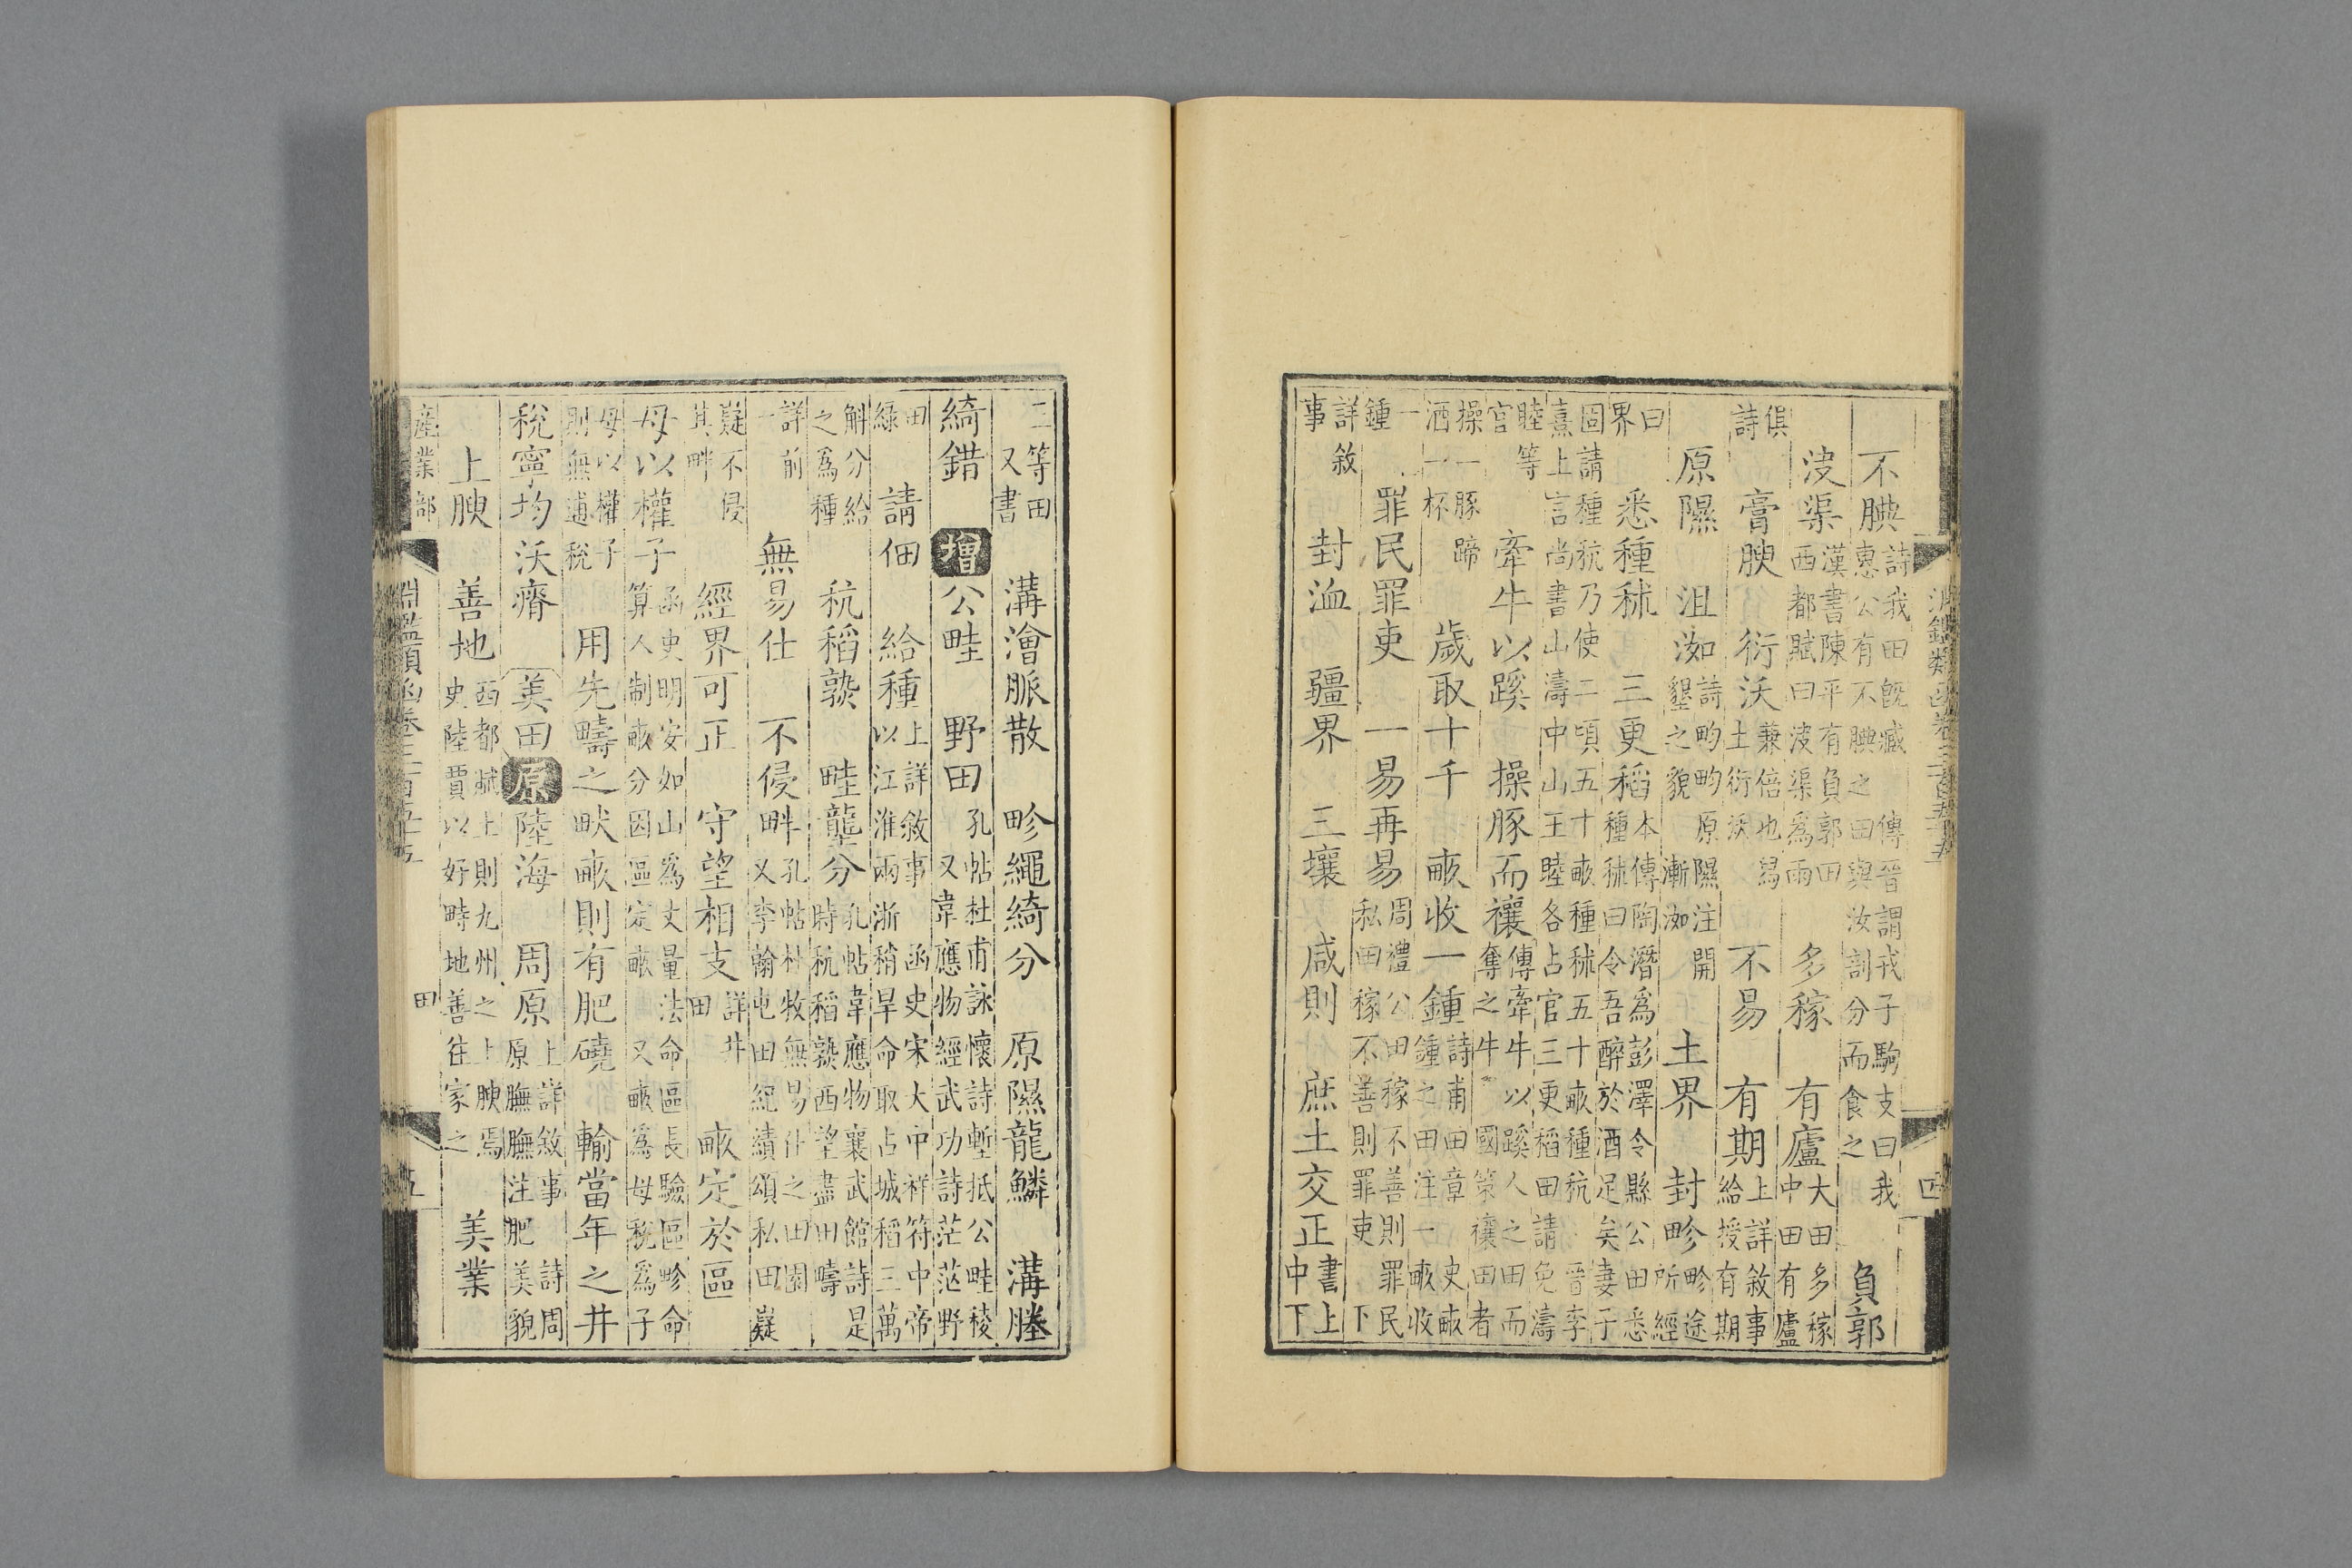 淵鑑類函卷三百五十五 四
不腆 詩我田既臧 傳晉謂戎子駒支曰我惠公有不腆之田與汝剖分而食之 負郭
波渠 漢書陳平有負郭田西都賦曰波渠為雨 多稼 有廬 大田多稼中田有廬
俱詩 膏腴 衍沃 兼倍也舄土衍沃 不易 有期 上詳敘事給授有期
原隰 沮洳 詩畇畇原隰注開墾之貌 漸洳 土界 封畛 畛途所經
曰界 悉種秫 三更稻 本傳陶潛為彭澤令縣公田悉種秫曰令吾醉於酒足矣妻子
固請種秔乃使二頃五十畝種秫五十畝種秔 晉李熹上言尚書山濤中山王睦各占官三更稻田請免濤
睦等官 牽牛以蹊 操豚而禳 傳牽牛以蹊人之田而奪之牛 國策禳田者
操一豚蹄酒一杯 歲取十千 畝收一鍾 詩甫田章 史畝鍾之田注一畝收
一鍾 罪民罪吏 一易再易 周禮公田稼不善則罪民私田稼不善則罪吏 下
詳敘事 封洫 疆界 三壤 咸則 庶土交正 書上中下
三等田又書 溝澮脈散 畛繩綺分 原隰龍鱗 溝塍
綺錯 增 公畦 野田 孔帖杜甫詠懷詩塹抵公畦稜又韋應物經武功詩茫茫野
田綠 請佃 給種 上詳敘事 函史宋大中祥符中帝以江淮兩浙稍旱命取占城稻三萬
斛分給之為種 秔稻熟 畦壟分 孔帖韋應物襄武館詩是時秔稻熟西望盡田疇
詳前一 無易仕 不侵畔 孔帖杜牧無易仕之田園又李翰屯田紀績頌私田嶷
嶷不侵其畔 經界可正 守望相支 詳井田 畝定於區
母以權子 函史明安如山為丈量法命區長驗區畛命算人制畝分因區定畝 又畝為母稅為子
母以權子則無逋稅 用先疇之畎畝則有肥磽 輸當年之井
稅寧均沃瘠 美田 原 陸海 周原 上詳敘事 詩周原膴膴注肥美貌
上腴 善地 西都賦上則九州之上腴焉史陸賈以好畤地善往家之 美業
產業部 淵鑑類函卷三百五十五 田 五